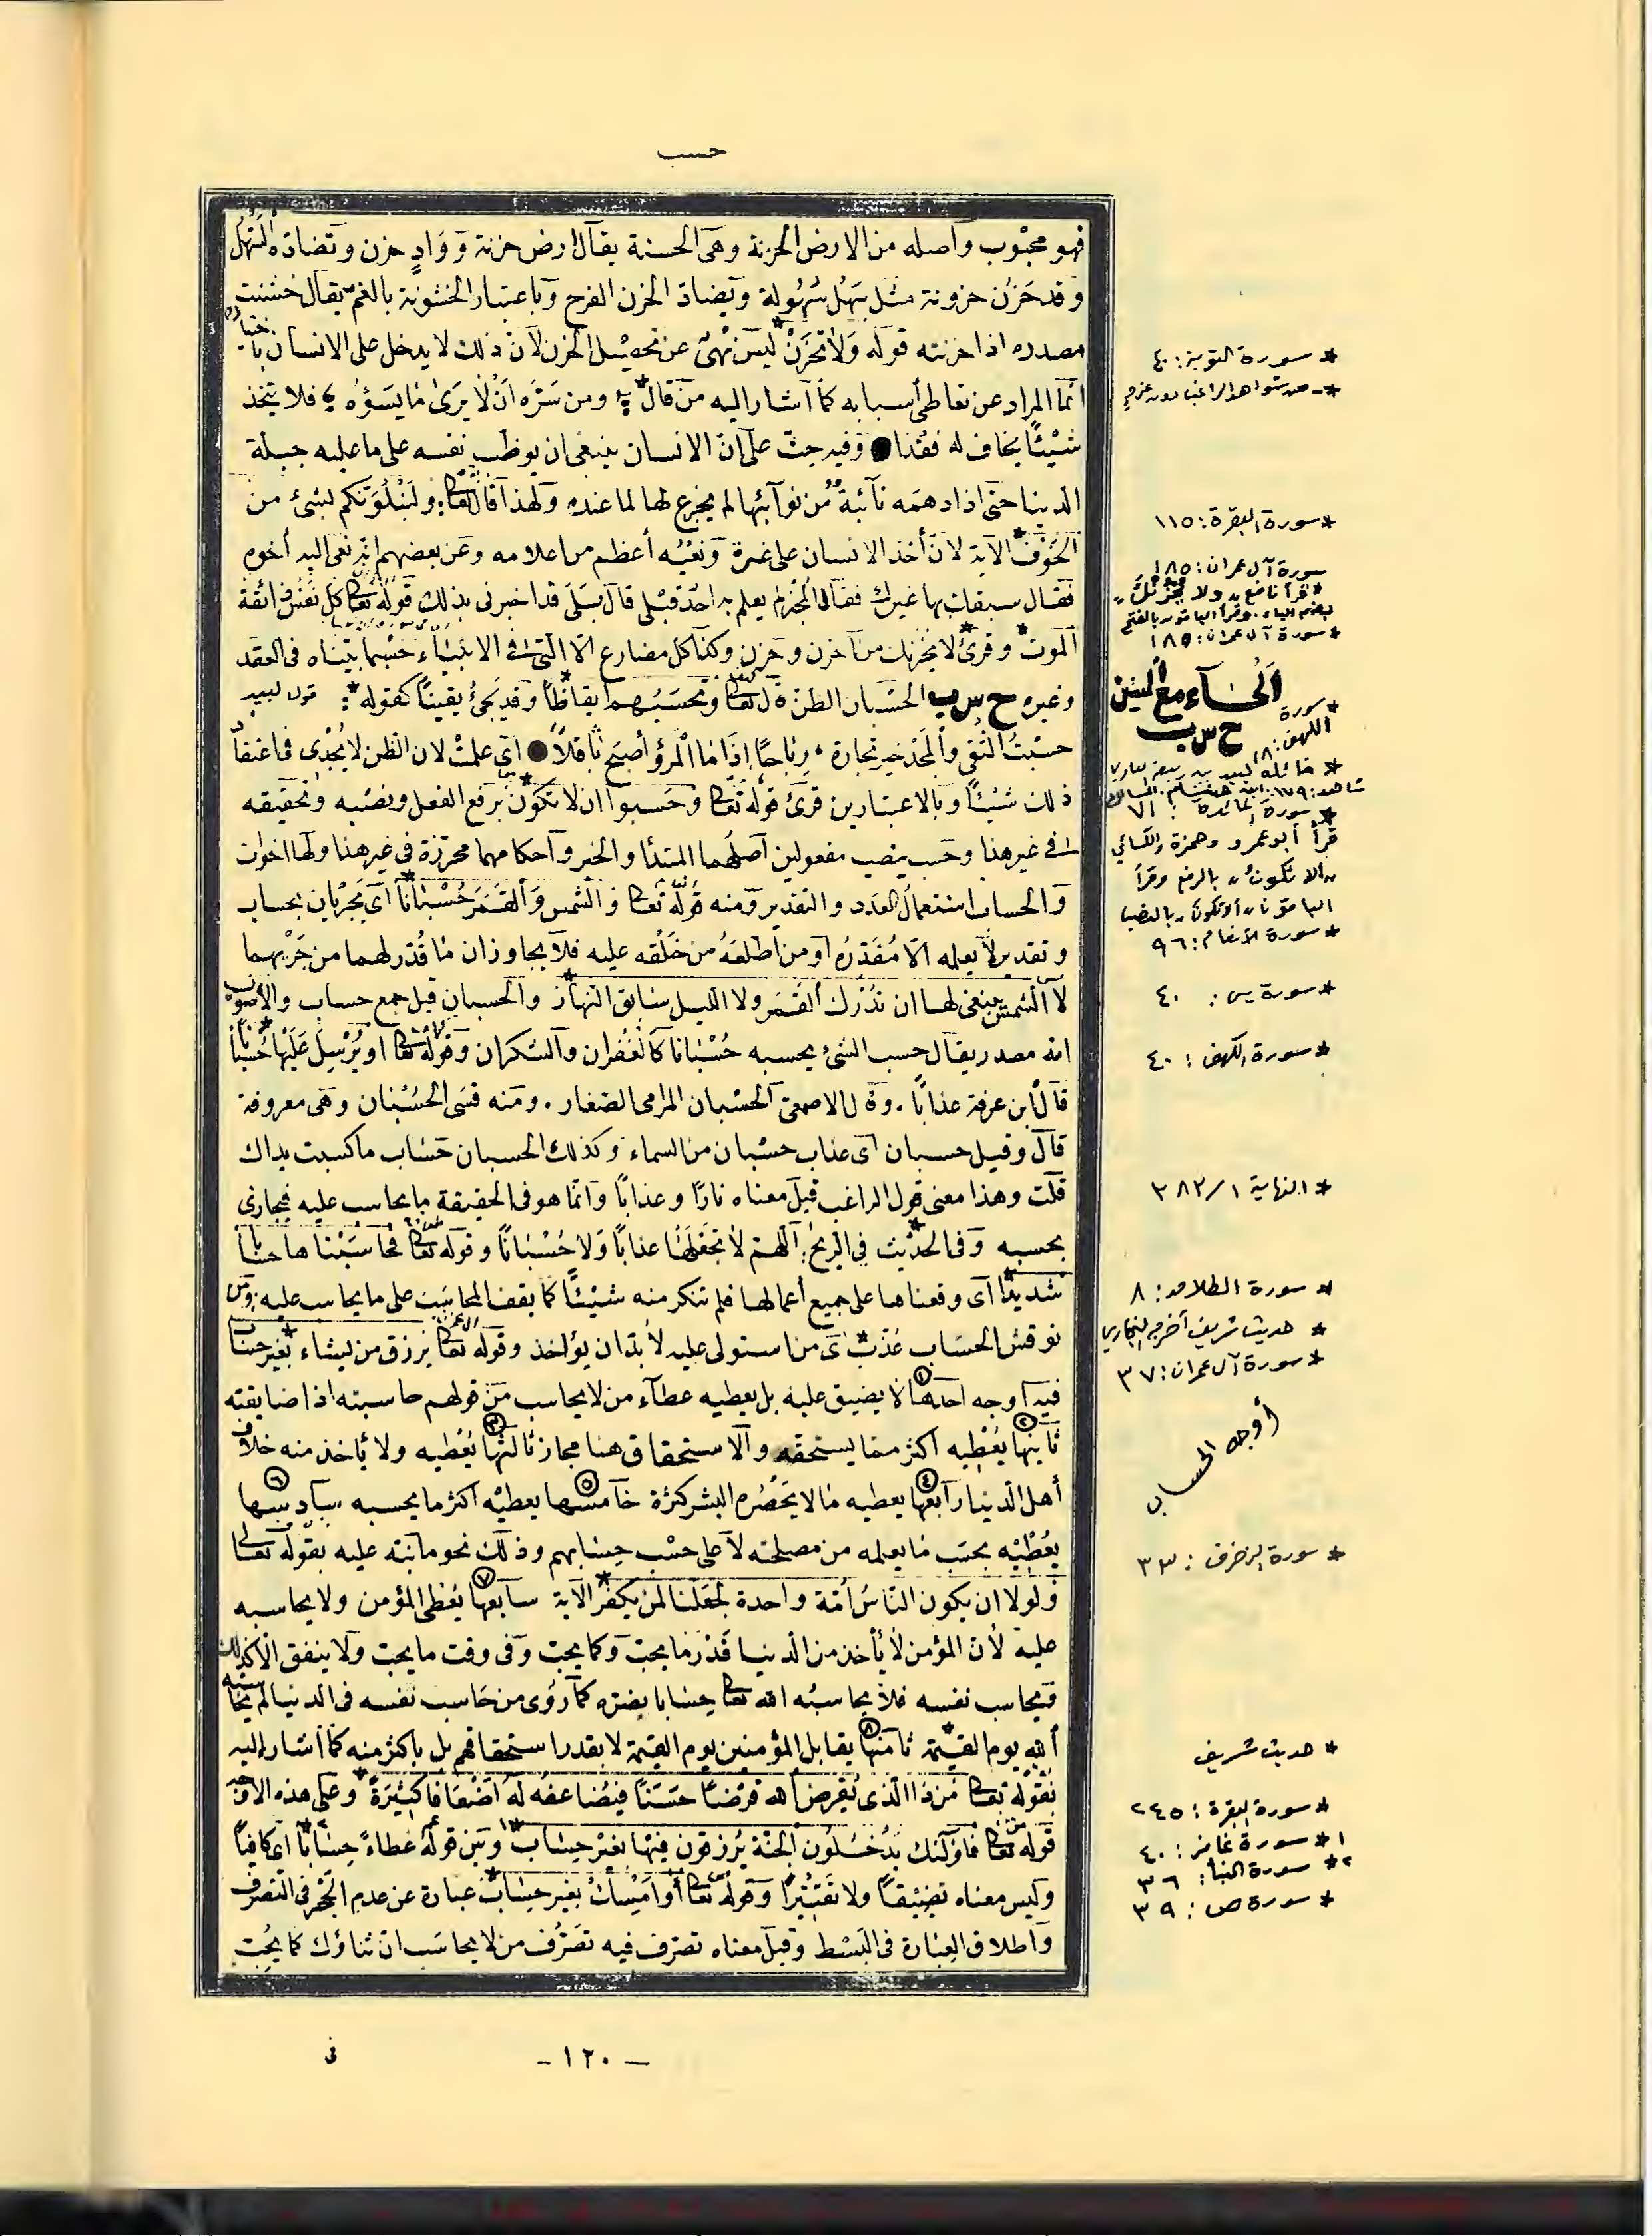 حسب
فهو محبوب وأصله من الارض الحزنة وهى الخشنة يقال ارض حزنة وواد حزن وتضاده السهل
وقد حزن حزونة مثل سهل سهولة ويضاد الحزن الفرح وباعتبار الخشونة بالغم يقال خشنت
بصدره اذا حزنته قوله وَلاٰ تَحْزَنْ* ليس نهى عن تحصيل الحزن لأن ذلك لا يدخل على الانسان باختياره
انما المراد عن تعاطى أسبابه كما أشار اليه من قال* ومن سَرَّه اَنْ لاٰ يَرىٰ مٰا يَسُؤُه فلا يتخذ
شيْئًا يخاف له فقْدا وفيه حث على ان الانسان ينبغى ان يوطن نفسه على ما عليه جبلة
الدنيا حتى اذا دهمه نائبة من نوآئبها لم يجزع لها لما عنده ولهذا قال تعالى ولَنَبْلُوَنّكم بشئ من
الخَوْف* الآية لانّ أخذ الانسان على غرة ونغبُه أعظم من اعلامه وعن بعضهم انه نعى اليه أخوه
فقال سبقك بها غيرك فقال المخبر لم يعلم به احد قبلى قال بلى قد اخبرنى بذلك قوله تعالى كل نفْس ذائقة
الموت* وقرئ لا يحزنك* من أحزن وحزن وكذا كل مضارع الا التى فى الانبياء حسْبما بيّنّاه فى العقد
وغيره ح س ب الحسْبان الظن قال تعالى وتحسَبُهم ايقاظًا* وقد يجئ يقينًا كقوله*: قول لبيد
حسْبتُ التُقى والمَجْد خير تجارة، رباحًا إذا ما المرؤ أصبح ثاقلاً أى علمتْ لان الظن لا يُجْدى فى اعتقاد
ذلك شيْئًا وبالاعتبارين قرئ قوله تعالى وحَسبوا ان لا تكون* برفع الفعل ونصْبه وتحقيقه
فى غير هذا وحسب ينصب مفعولين أصلهما المبتدأ والخبر وأحكامهما محرّرة فى غير هذا ولها اخوات
والحساب استعمال العدد والتقدير ومنه قوله تعالى والشمس والقمر حُسْبٰانًا* أى يَجْريان بحساب
وتقدير لا يعلمه الا مُقدّرُه أو من أطلعَهُ من خَلْقه عليه فلا يجاوزان مٰا قُدّر لهما من جَرْيهما
لا الشمس ينبغى لها ان تُدْرك القَمَر ولا الليل سٰابق النهٰار* والحسبان قيل جمع حساب والأصوب
انه مصدر يقال حسب الشئ يحسبه حُسْبٰانا كالغُفْران والشكران وقوله تعالى او يُرْسِل عَلَيْها حُسْبٰانًا*
قال ابن عرفة عذابًا. وقال الاصمعى الحسْبان المرامى الصغار. ومنه قسّى الحُسْبان وهى معروفة
قال وقيل حسبان أى عذاب حسْبان من السماء وكذلك الحسبان حسٰاب ما كسبت يداك
قلت وهذا معنى قول الراغب قيل معناه نارًا وعذابًا وانما هو فى الحقيقة ما يحاسب عليه فيجازى
بحسبه وفى الحديث* فى الريح: اللّهم لاٰ تجعلها عذابًا وَلا حُسْبٰانًا وقوله تعالى فحٰاسَبْنٰاها حسٰابًا
شديدًا* أى وقفناها على جميع أعمالها فلم تنكر منه شيْئًا كما يقف المحاسَب على ما يحاسب عليه: ومن
نوقش الحسَاب عُذّب* أى من استولى عليه لاٰ بدّ ان يؤاخذ وقوله تعالى يرزق من يشاء بغير حسٰاب*
فيه أوجه احدها ① لا يضيق عليه بل يعطيه عطآء من لا يحاسب من قولهم حاسبته اذا ضايقته
ثانيها ② يُعْطيه اكثر مما يستحقه والاستحقاق هنا مجاز ثالثها ③ يُعْطيه ولا يأخذ منه خلاف
أهل الدنيا رابعها ④ يعطيه مٰا لا يَحْصُره البشر كثرة خامسها ⑤ يعطيْه اكثر ما يحسبه سادسها ⑥
يعْطيْه بحسَب مٰا يعلمه من مصلحته لا على حسْب حسٰابهم وذلك نحو ما نبّه عليه بقوله تعالى
ولولا ان يكون النّاسُ أمّة واحدة لجعَلْنا لمن يكفُر* الآية سابعها ⑦ يعْطى المؤمن ولا يحاسبه
عليه لأن المؤمن لاٰ يأخذ من الدنيا قَدْر ما يجب وكما يجب وفى وقت ما يجب ولا ينفق الا كذلك
فيحاسب نفسه فلا يحاسبُه الله تعالى حِسٰابا يضرّه كما روى من حَاسب نفسه فى الدنيا لم يحاسبه
الله يوم القيٰمة* ثامنها ⑧ يقابل المؤمنين يوم القيٰمة لا بقدر استحقاقهم بل باكثر منه كما أشار اليه
بقوله تعالى مَن ذا الّذى يُقرض الله قَرْضًا حَسَنًا فيُضاعفهُ لَهُ اَضْعَافًا كَثيْرَةً* وعلى هذه الاوجه
قوله تعالى فاولٰئك يَدْخُلُون الجنّة يُرزقون فيْها بغيْر حِسٰاب*¹ وبَيْن قوله عطاءً حِسٰابًا*² أى كافيًا
وليس معناه تضْيْيقًا ولا تَقْتيْرًا وقوله تعالى أو اَمْسِك بغيْر حِسٰاب* عبارة عن عدم الحَجْر فى التصرف
واطلاق العبٰارة فى البَسْط وقيل معناه تصرّف فيه تَصَرُّف من لا يحاسَب ان تناؤك كما يُحِب
* سورة التوبة: ٤٠
* - من شواهد الراغب
* سورة البقرة: ١١٥
سورة آل عمران: ١٨٥
* قرأ نافع "ولا يحزنك"
بضم الياء. وقرأ الباقون بالفتح
* سورة آل عمران: ١٨٥
اَلْحٰاء مع السّين
ح س ب
* سورة
الكهف: ١٨
* قائله لبيد بن ربيعة العامري
* سورة المائدة: ٧١
قرأ أبو عمرو وحمزة والكسائي
"ألا تكونُ" بالرفع وقرأ
الباقون "ألا تكونَ" بالنصب
* سورة الأنعام: ٩٦
* سورة يس: ٤٠
* سورة الكهف: ٤٠
* النهاية ١/٣٨٣
* سورة الطلاق: ٨
* حديث شريف أخرجه البخاري
* سورة آل عمران: ٣٧
أوجه الحساب
* سورة الزخرف: ٣٣
* حديث شريف
* سورة البقرة: ٢٤٥
١* سورة غافر: ٤٠
٢* سورة النبأ: ٣٦
* سورة ص: ٣٩
- ١٢٠ -
فى